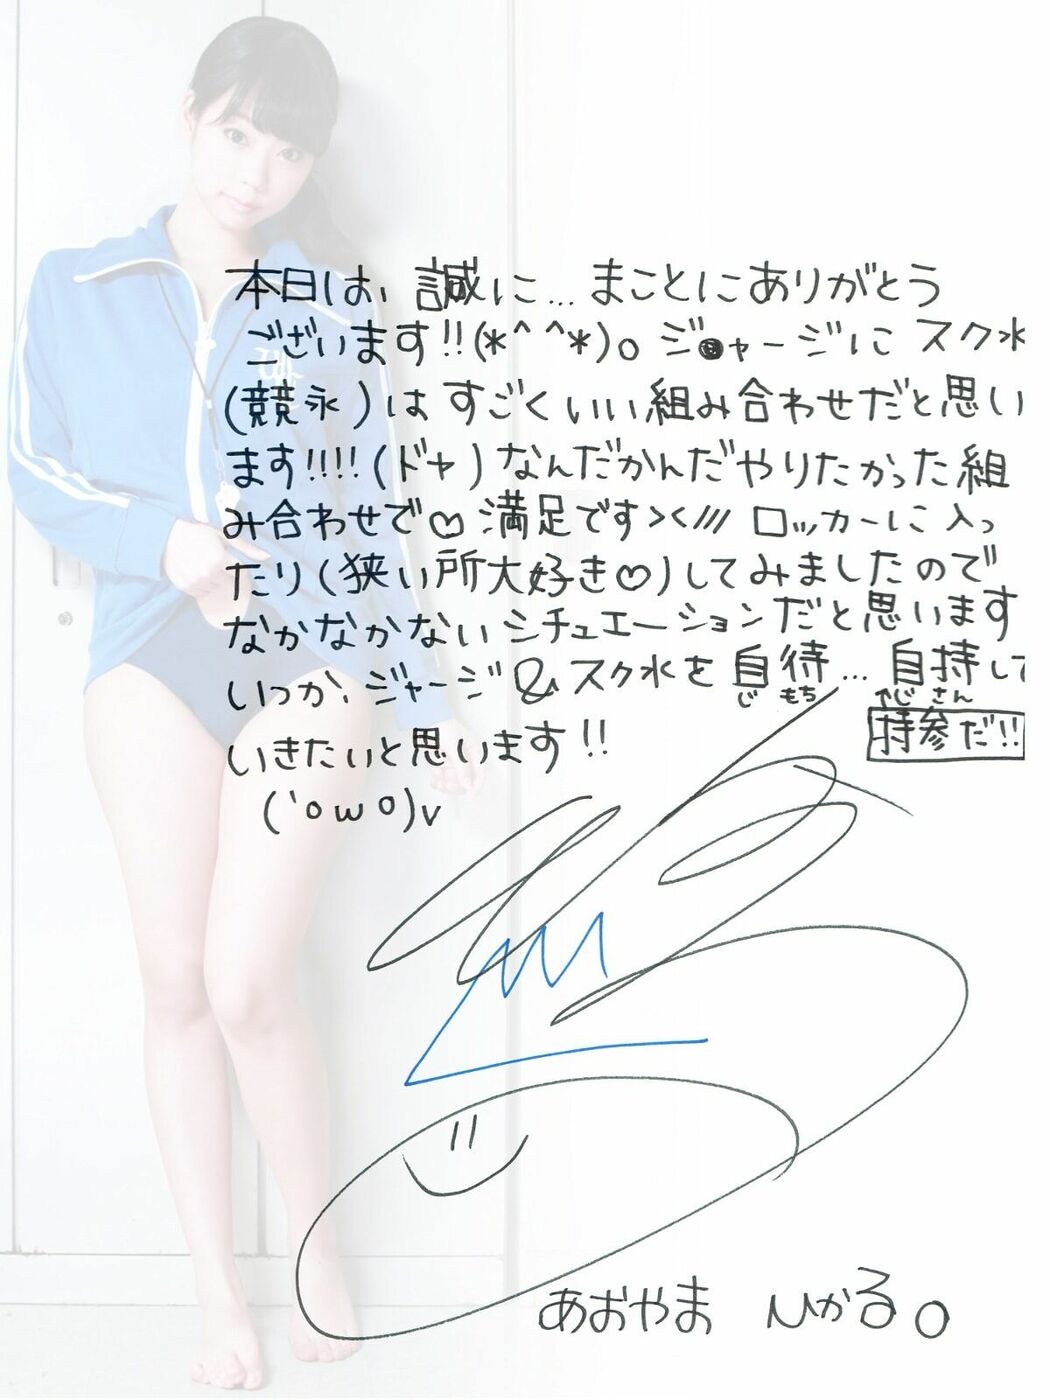 本日は、誠に...まことにありがとう
ございます!!(*^^*)。ジャージにスク水
(競永)はすごくいい組み合わせだと思い
ます!!!!(ドヤ)なんだかんだやりたかった組
み合わせで♡満足です><///ロッカーに入っ
たり(狭い所大好き♡)してみましたので
なかなかないシチュエーションだと思います
いつか、ジャージ&スク水を自待...自持して
じ もち
↑じ さん
持参だ!!
いきたいと思います!!
(`oωo)v
あおやま ひかる。